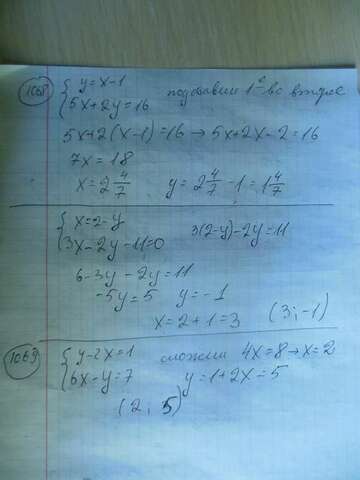 1068 { y=x-1 подставим 1е во второе
5x+2y=16
5x+2(x-1)=16 → 5x+2x-2=16
7x=18
x=2 4/7 y=2 4/7 -1=1 4/7
{ x=2-y
3x-2y-11=0 3(2-y)-2y=11
6-3y-2y=11
-5y=5 y=-1
x=2+1=3 (3;-1)
1069 { y-2x=1 сложим 4x=8→x=2
6x-y=7 y=1+2x=5
(2; 5)